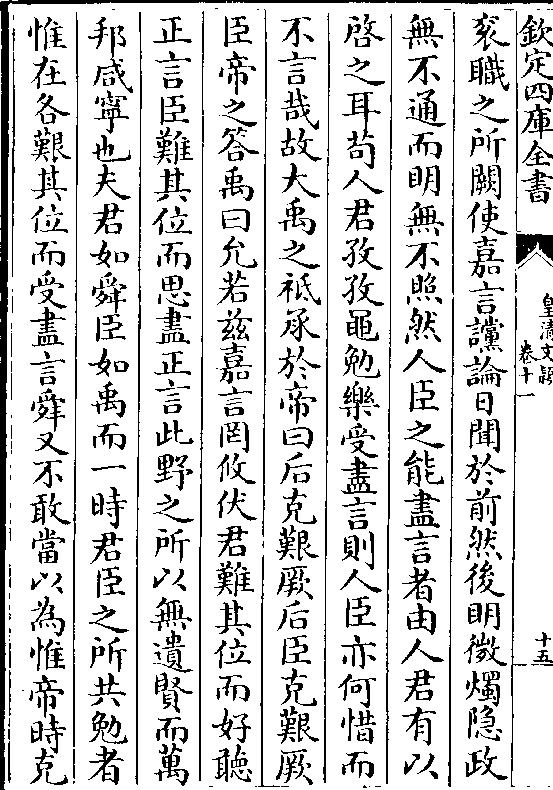 欽定四庫全書
皇清文穎
卷十一
十五
袞職之所闕使嘉言讜論日聞於前然後明微燭隐政
無不通而明無不照然人臣之能盡言者由人君有以
啓之耳苟人君孜孜黽勉樂受盡言則人臣亦何惜而
不言哉故大禹之祗承於帝曰后克艱厥后臣克艱厥
臣帝之答禹曰允若兹嘉言罔攸伏君難其位而好聽
正言臣難其位而思盡正言此野之所以無遺賢而萬
邦咸寧也夫君如舜臣如禹而一時君臣之所共勉者
惟在各艱其位而受盡言舜又不敢當以為惟帝時克